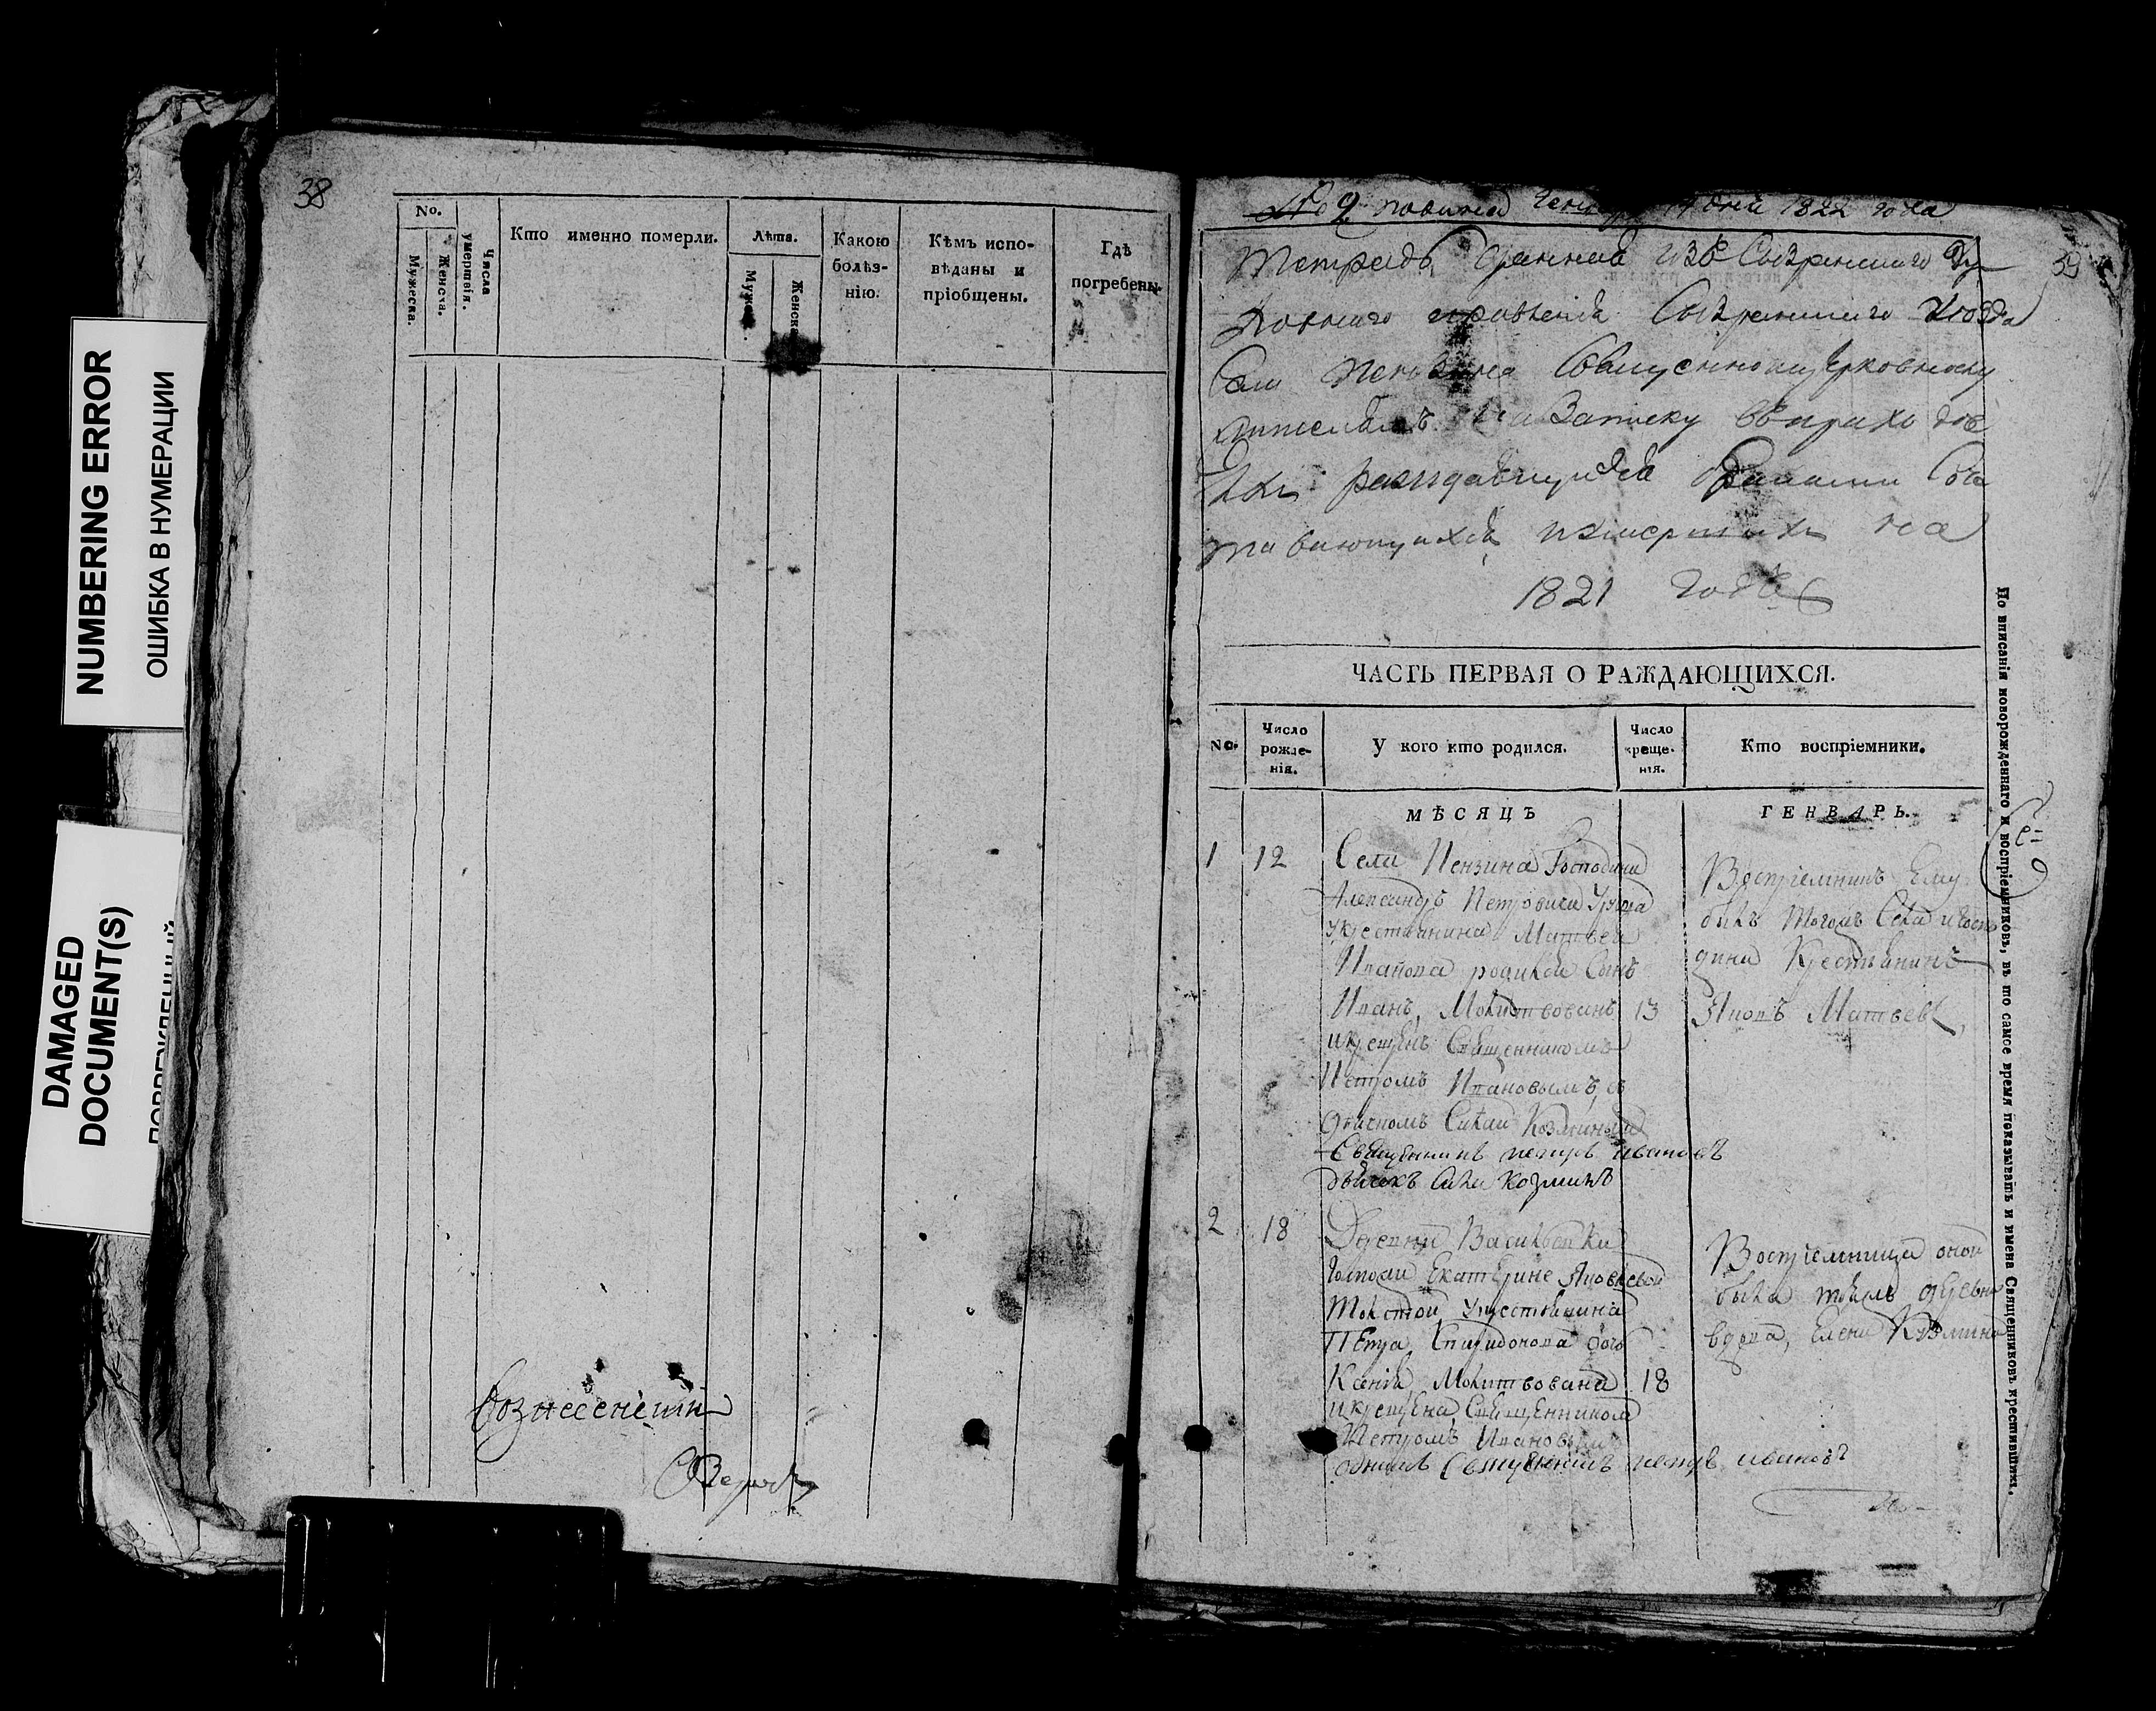 NUMBERING ERROR
ОШИБКА В НУМЕРАЦИИ
DAMAGED
DOCUMENT(S)
38
No.
Мужеска.
Женска.
Числа
умертвія.
Кто именно померли.
Лѣта.
Мужес
Женска
Какою
болѣз-
нію.
Кѣмъ испо-
вѣданы и
пріобщены.
Гдѣ
погребены.
вознесенский
№ 9 1822 года
39
Тетрадь Данная изъ Сызранского Ду-
ховнаго правления Сызранского уезда
Села Пензина Священноцерковнослу
жителямъ на Записку въприходе
ихъ раждающихся браками Соче
тавающихся иумерших на
1821 годъ
ЧАСТЬ ПЕРВАЯ О РАЖДАЮЩИХСЯ.
No.
Число
рожде-
нія.
У кого кто родился.
Число
креще-
нія.
Кто воспріемники.
МѢСЯЦЪ
ГЕНВАРЬ.
1 12
Села Пензина Господина
Александра Петровича
укрестьянина Матвея
Иванова родился Сынъ
Иванъ, Молитвованъ 13
икрещенъ Священникомъ
Петромъ Ивановымъ, съ
Силаи Козминымъ
Священникъ петръ Ивановъ
дьячокъ Сила Козминъ
Воспріемникъ Ему
былъ тогожъ Села игоспо
дина Крестьянинъ
Яковъ Матвевъ,
2 18
Деревни Васильевки
Госпожи Екатерине Яковлевой
Толстой укрестьянина
Петра Спиридонова дочь
Ксенія, Молитвована 18
икрещена Священникомъ
Петромъ Ивановым
Священникъ петръ ивановъ
Воспріемница оной
была тойжъ деревни
вдова, Елена Козмина
По вписаніи новорожденнаго и воспріемниковъ, въ то самое время показывать и имена Священниковъ крестившихъ.